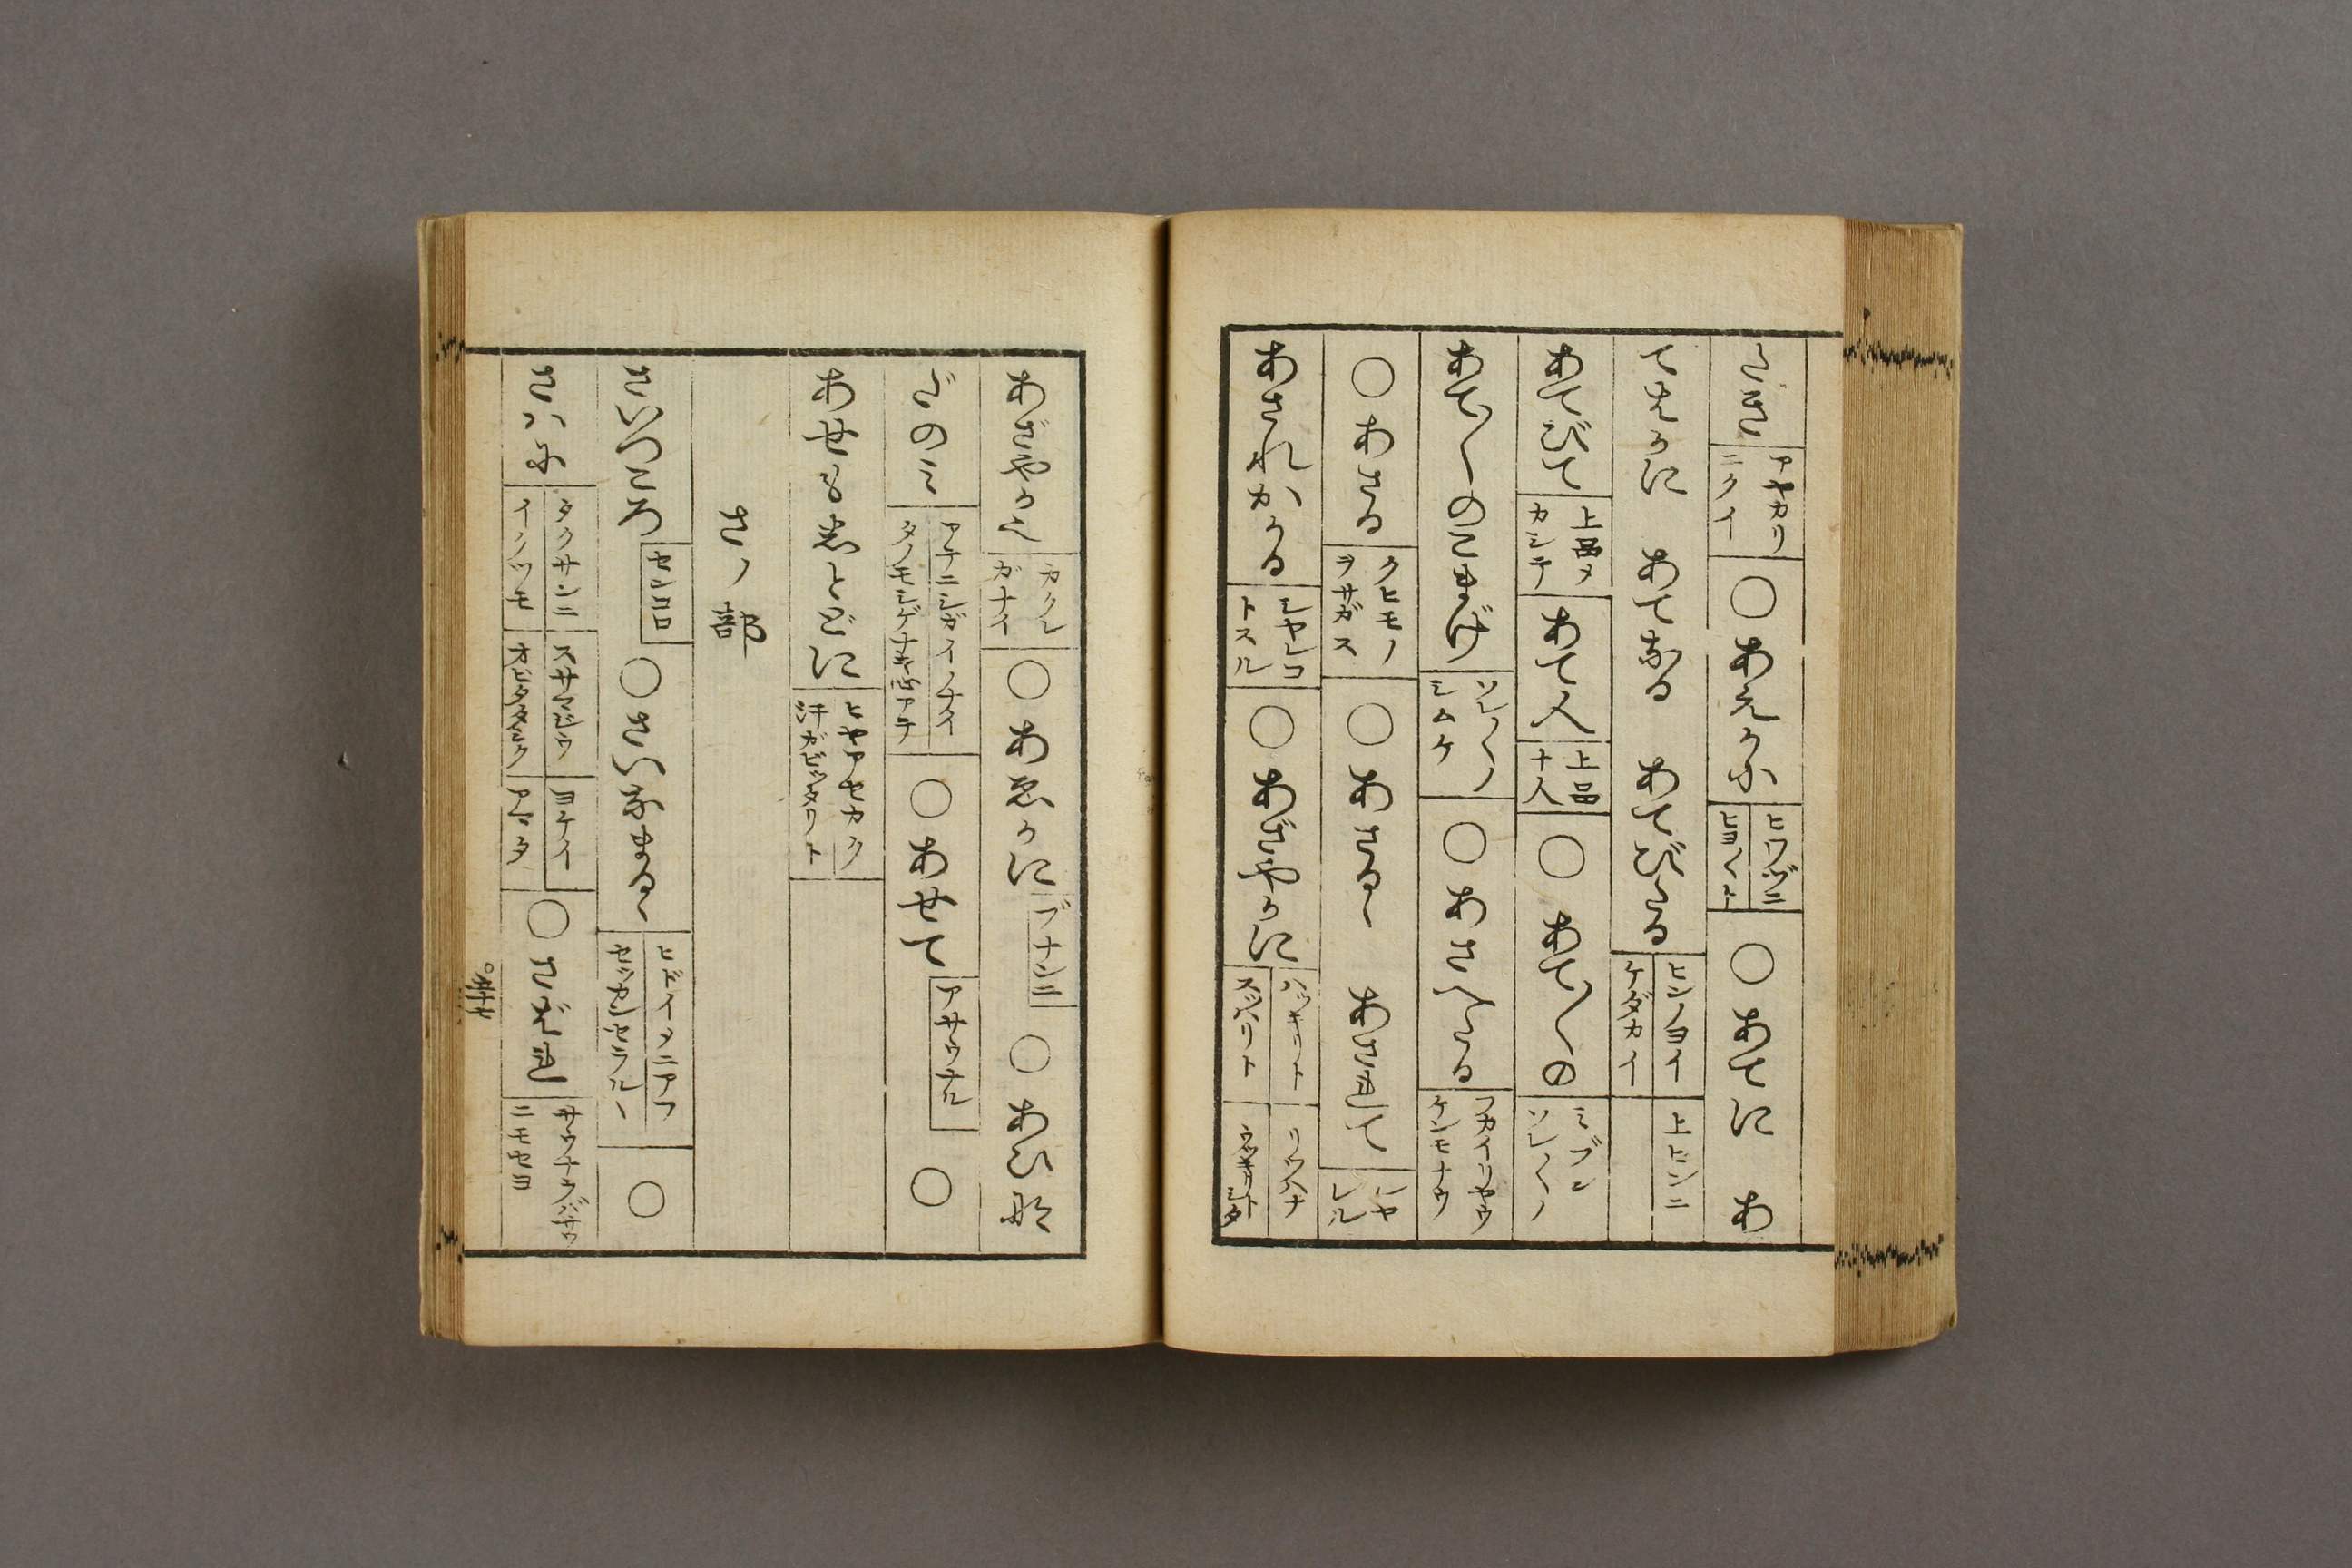 アヤカリ
ニクイ
○あえかに
ヒワヅニ
○あてに　あ
てはかに　あてなる　あてびたる
ヒンノヨイ
ケダカイ
上ヒンニ
あてびて
上品メ
カシテ
あて人
上品
ナ人
○あて〳〵の
ミブン
ソレ〳〵ノ
あて〳〵のこまげ
ソレ〳〵ノ
シムケ
○あさへたる
フカイリヤウ
ケンモナウ
○あさる
クヒモノ
ヲサガス
○あさるゝ　あされて
シヤ
レル
あされかゝる
シヤレコ
トスル
○あざやかに
ハッキリト
スッパリト
リッパナ
あざやかに
カクレ
ガナイ
○あゑかに
ブナンニ
○あひな
だのミ
アテニシガイノナイ
○あせて
アサウナル
○
あせもしとどに
ヒヤアセカク
汗ガビッタリト
さノ部
さいつころ
センコロ
○さいなまるゝ
ヒドイメニアフ
セッカンセラルヽ
○
さハに
タクサンニ
イクツモ
スサマジウ
ヨケイ
アマタ
○さばれ
サウナラバサウ
ニモセヨ